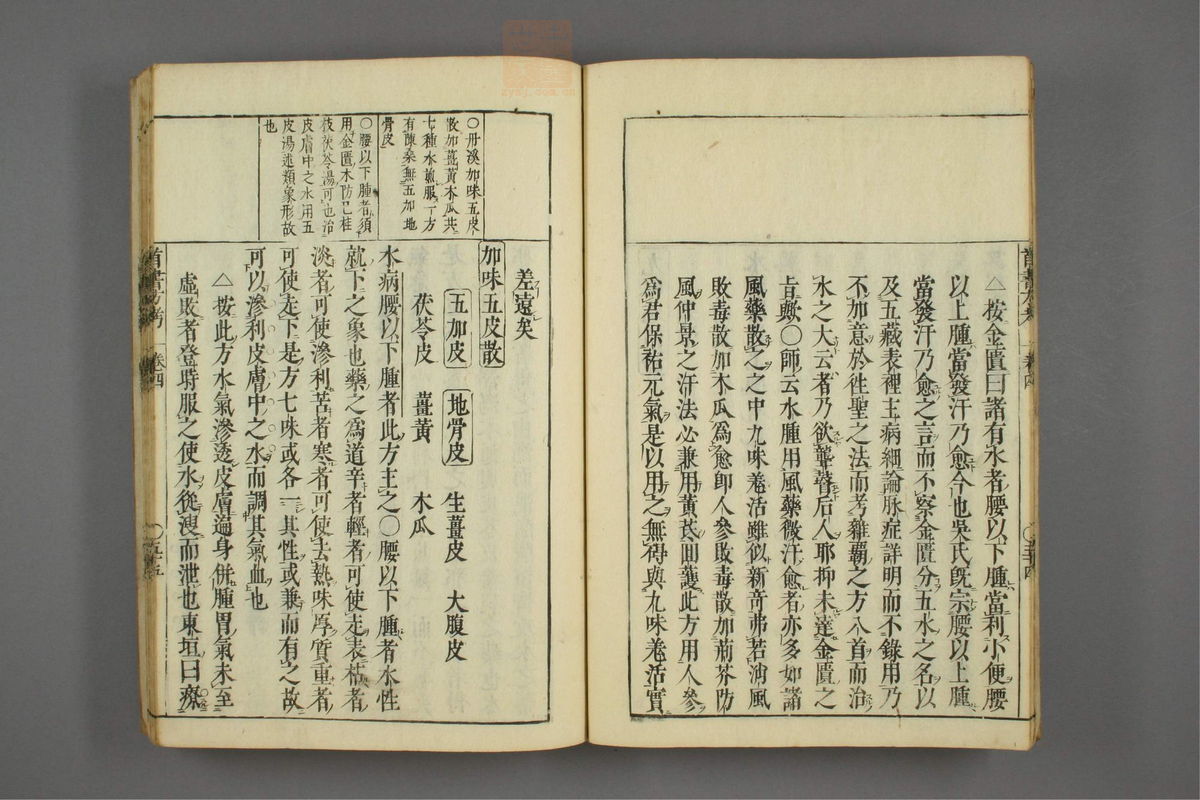 △按金匱曰諸有水者腰以下腫當利小便腰
以上腫當發汗乃愈今也吳氏既宗腰以上腫
當發汗乃愈之言而不察金匱分五水之名以
及五藏表裡主病細論脉症詳明而不錄用乃
不加意於往聖之法而考雜覇之方入首而治
水之大云者乃欲聾瞽后人耶抑未達金匱之
旨歟○師云水腫用風藥微汗愈者亦多如諸
風藥散之之中九味羗活雖似新奇弗若消風
敗毒散加木瓜爲愈卽人參敗毒散加荊芥防
風仲景之汗法必兼用黃芪固護此方用人參
爲君保祐元氣是以用之無得與九味羗活實
首書方考 卷四 ○五十四
○丹溪加味五皮
散加薑黃木瓜共
七種水煎服一方
有陳桑無五加地
骨皮
○腰以下腫者須
用金匱木防已桂
枝茯苓湯可也治
皮膚中之水用五
皮湯述類象形故
也
差遠矣
加味五皮散
五加皮 地骨皮 生薑皮 大腹皮
茯苓皮 薑黃 木瓜
水病腰以下腫者此方主之○腰以下腫者水性
就下之象也藥之爲道辛者輕者可使走表枯者
淡者可使滲利苦者寒者可使去熱味厚質重者
可使走下是方七味或各一其性或兼而有之故
可以滲利皮膚中之水而調其氣血也
△按此方水氣滲透皮膚遍身併腫胃氣未至
虛敗者登時服之使水從溲而泄也東垣曰療
首書方考 卷四 ○五十五